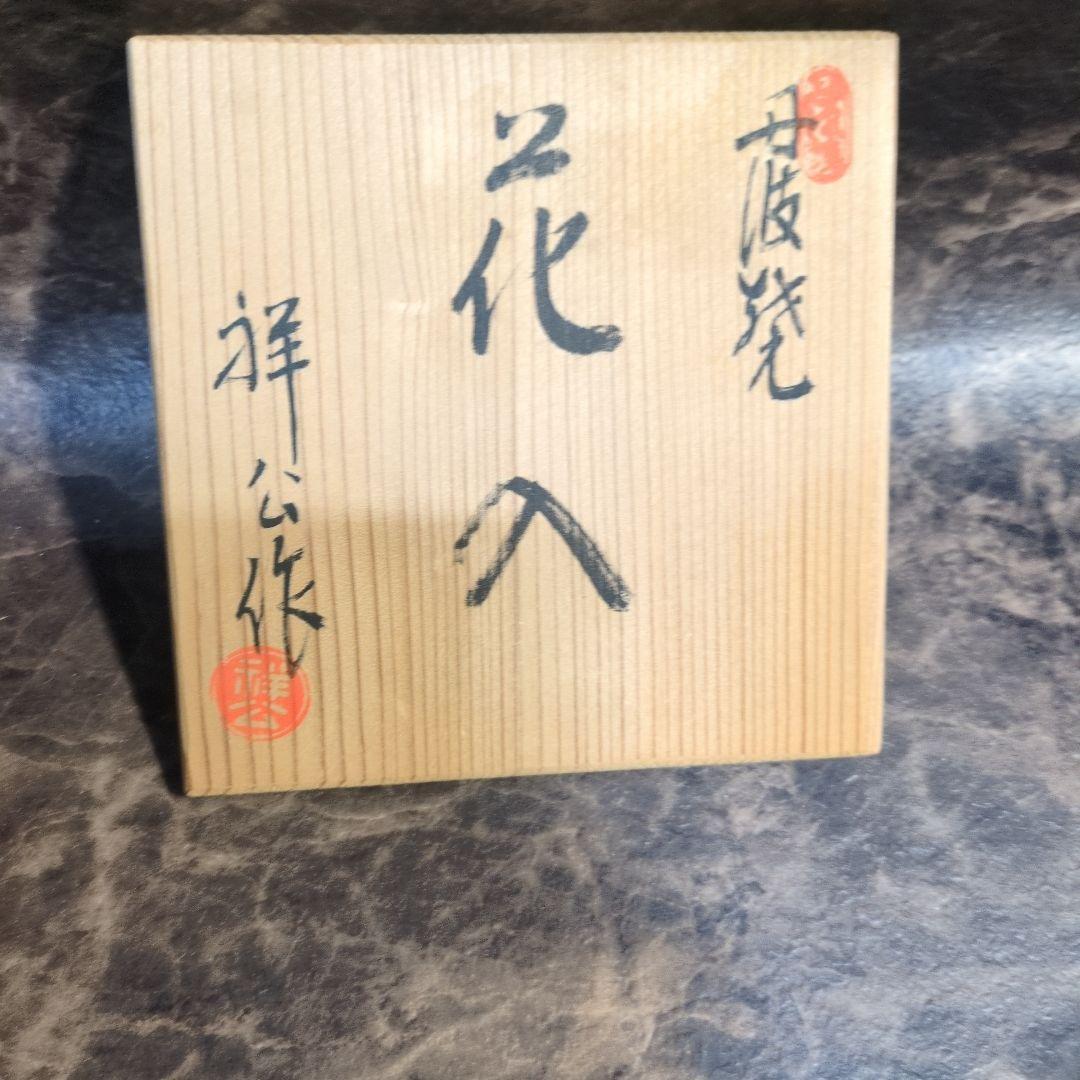 丹波焼
花入
祥公作
祥公